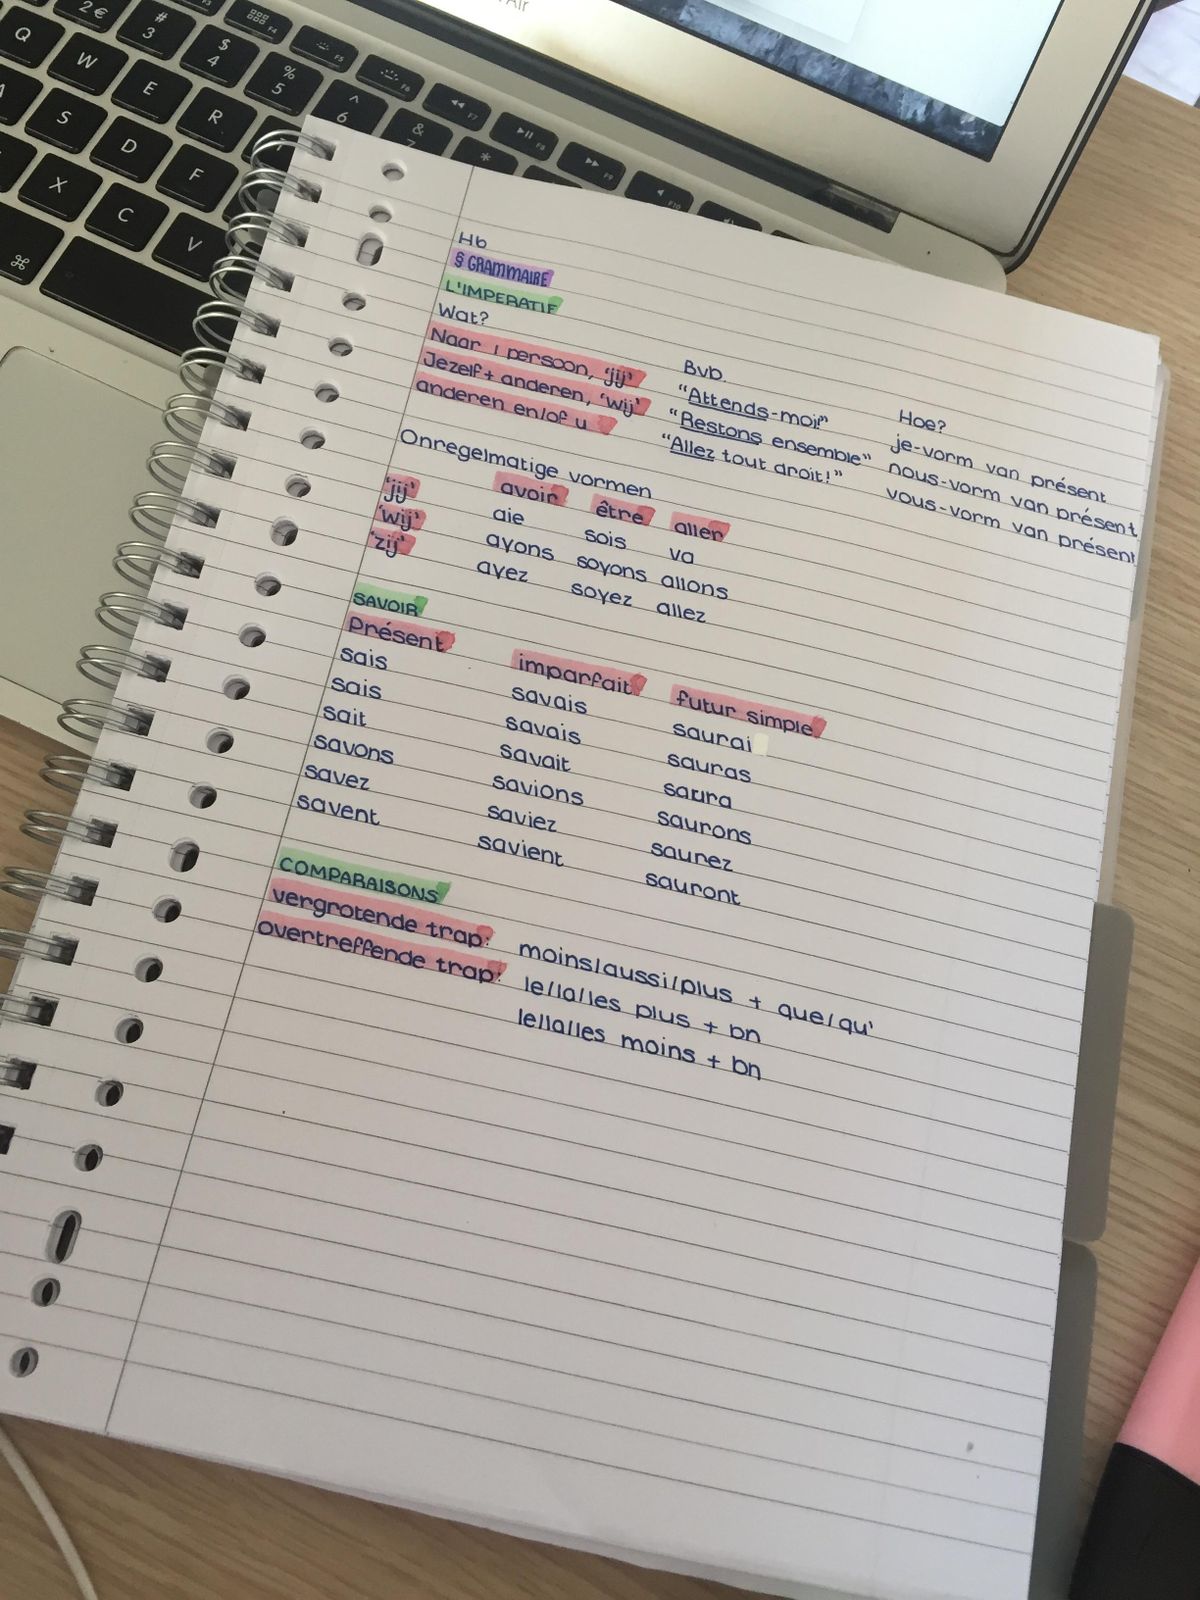 Air
2 €
#
3
$
4
%
5
^
6
&
7
*
F4
F5
F6
F7
F8
F9
F10
Q
W
E
R
A
S
D
F
X
C
V
⌘
Hb
§ GRAMMAIRE
L'IMPERATIF
Wat? Bvb. Hoe?
Naar 1 persoon, 'jij' "Attends-moi!" je-vorm van présent
Jezelf + anderen, 'wij' "Restons ensemble" nous-vorm van présent
anderen en/of u "Allez tout droit!" vous-vorm van présent
Onregelmatige vormen
avoir être aller
'jij' aie sois va
'wij' ayons soyons allons
'zij' ayez soyez allez
SAVOIR
Présent imparfait futur simple
sais savais saurai
sais savais sauras
sait savait saura
savons savions saurons
savez saviez saurez
savent savient sauront
COMPARAISONS
vergrotende trap: moins/aussi/plus + que/qu'
overtreffende trap: le/la/les plus + bn
le/la/les moins + bn